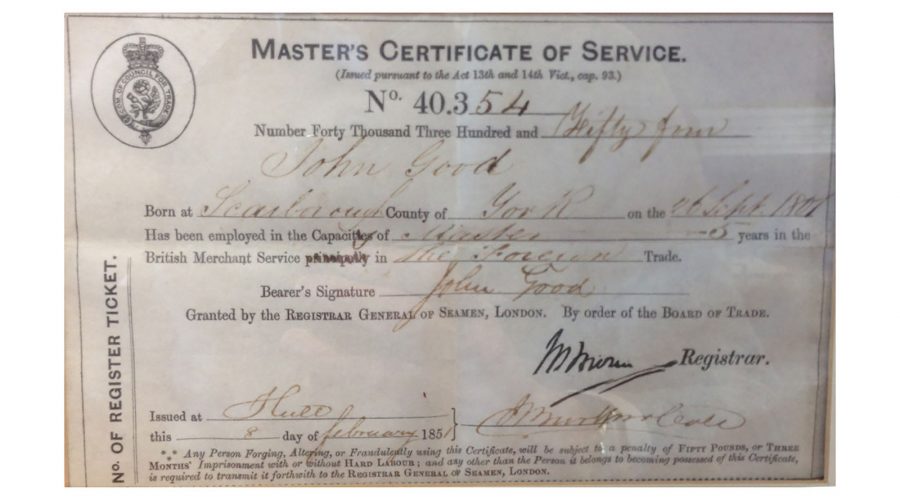 MASTER'S CERTIFICATE OF SERVICE.
(Issued pursuant to the Act 13th and 14th Vict., cap. 93.)
No. 40.354
Number Forty Thousand Three Hundred and Fifty four
John Good
Born at Scarborough County of York on the 26 Sept. 1801
Has been employed in the Capacity of Master 5 years in the
British Merchant Service principally in the Foreign Trade.
Bearer's Signature John Good
Granted by the REGISTRAR GENERAL OF SEAMEN, LONDON. By order of the BOARD OF TRADE.
Registrar.
Issued at Hull
this 8 day of february 1851
*** Any Person Forging, Altering, or Fraudulently using this Certificate, will be subject to a penalty of FIFTY POUNDS, or THREE
MONTHS' Imprisonment with or without HARD LABOUR; and any other than the Person it belongs to becoming possessed of this Certificate,
is required to transmit it forthwith to the REGISTRAR GENERAL OF SEAMEN, LONDON.
No. OF REGISTER TICKET.
COUNCIL FOR TRADE